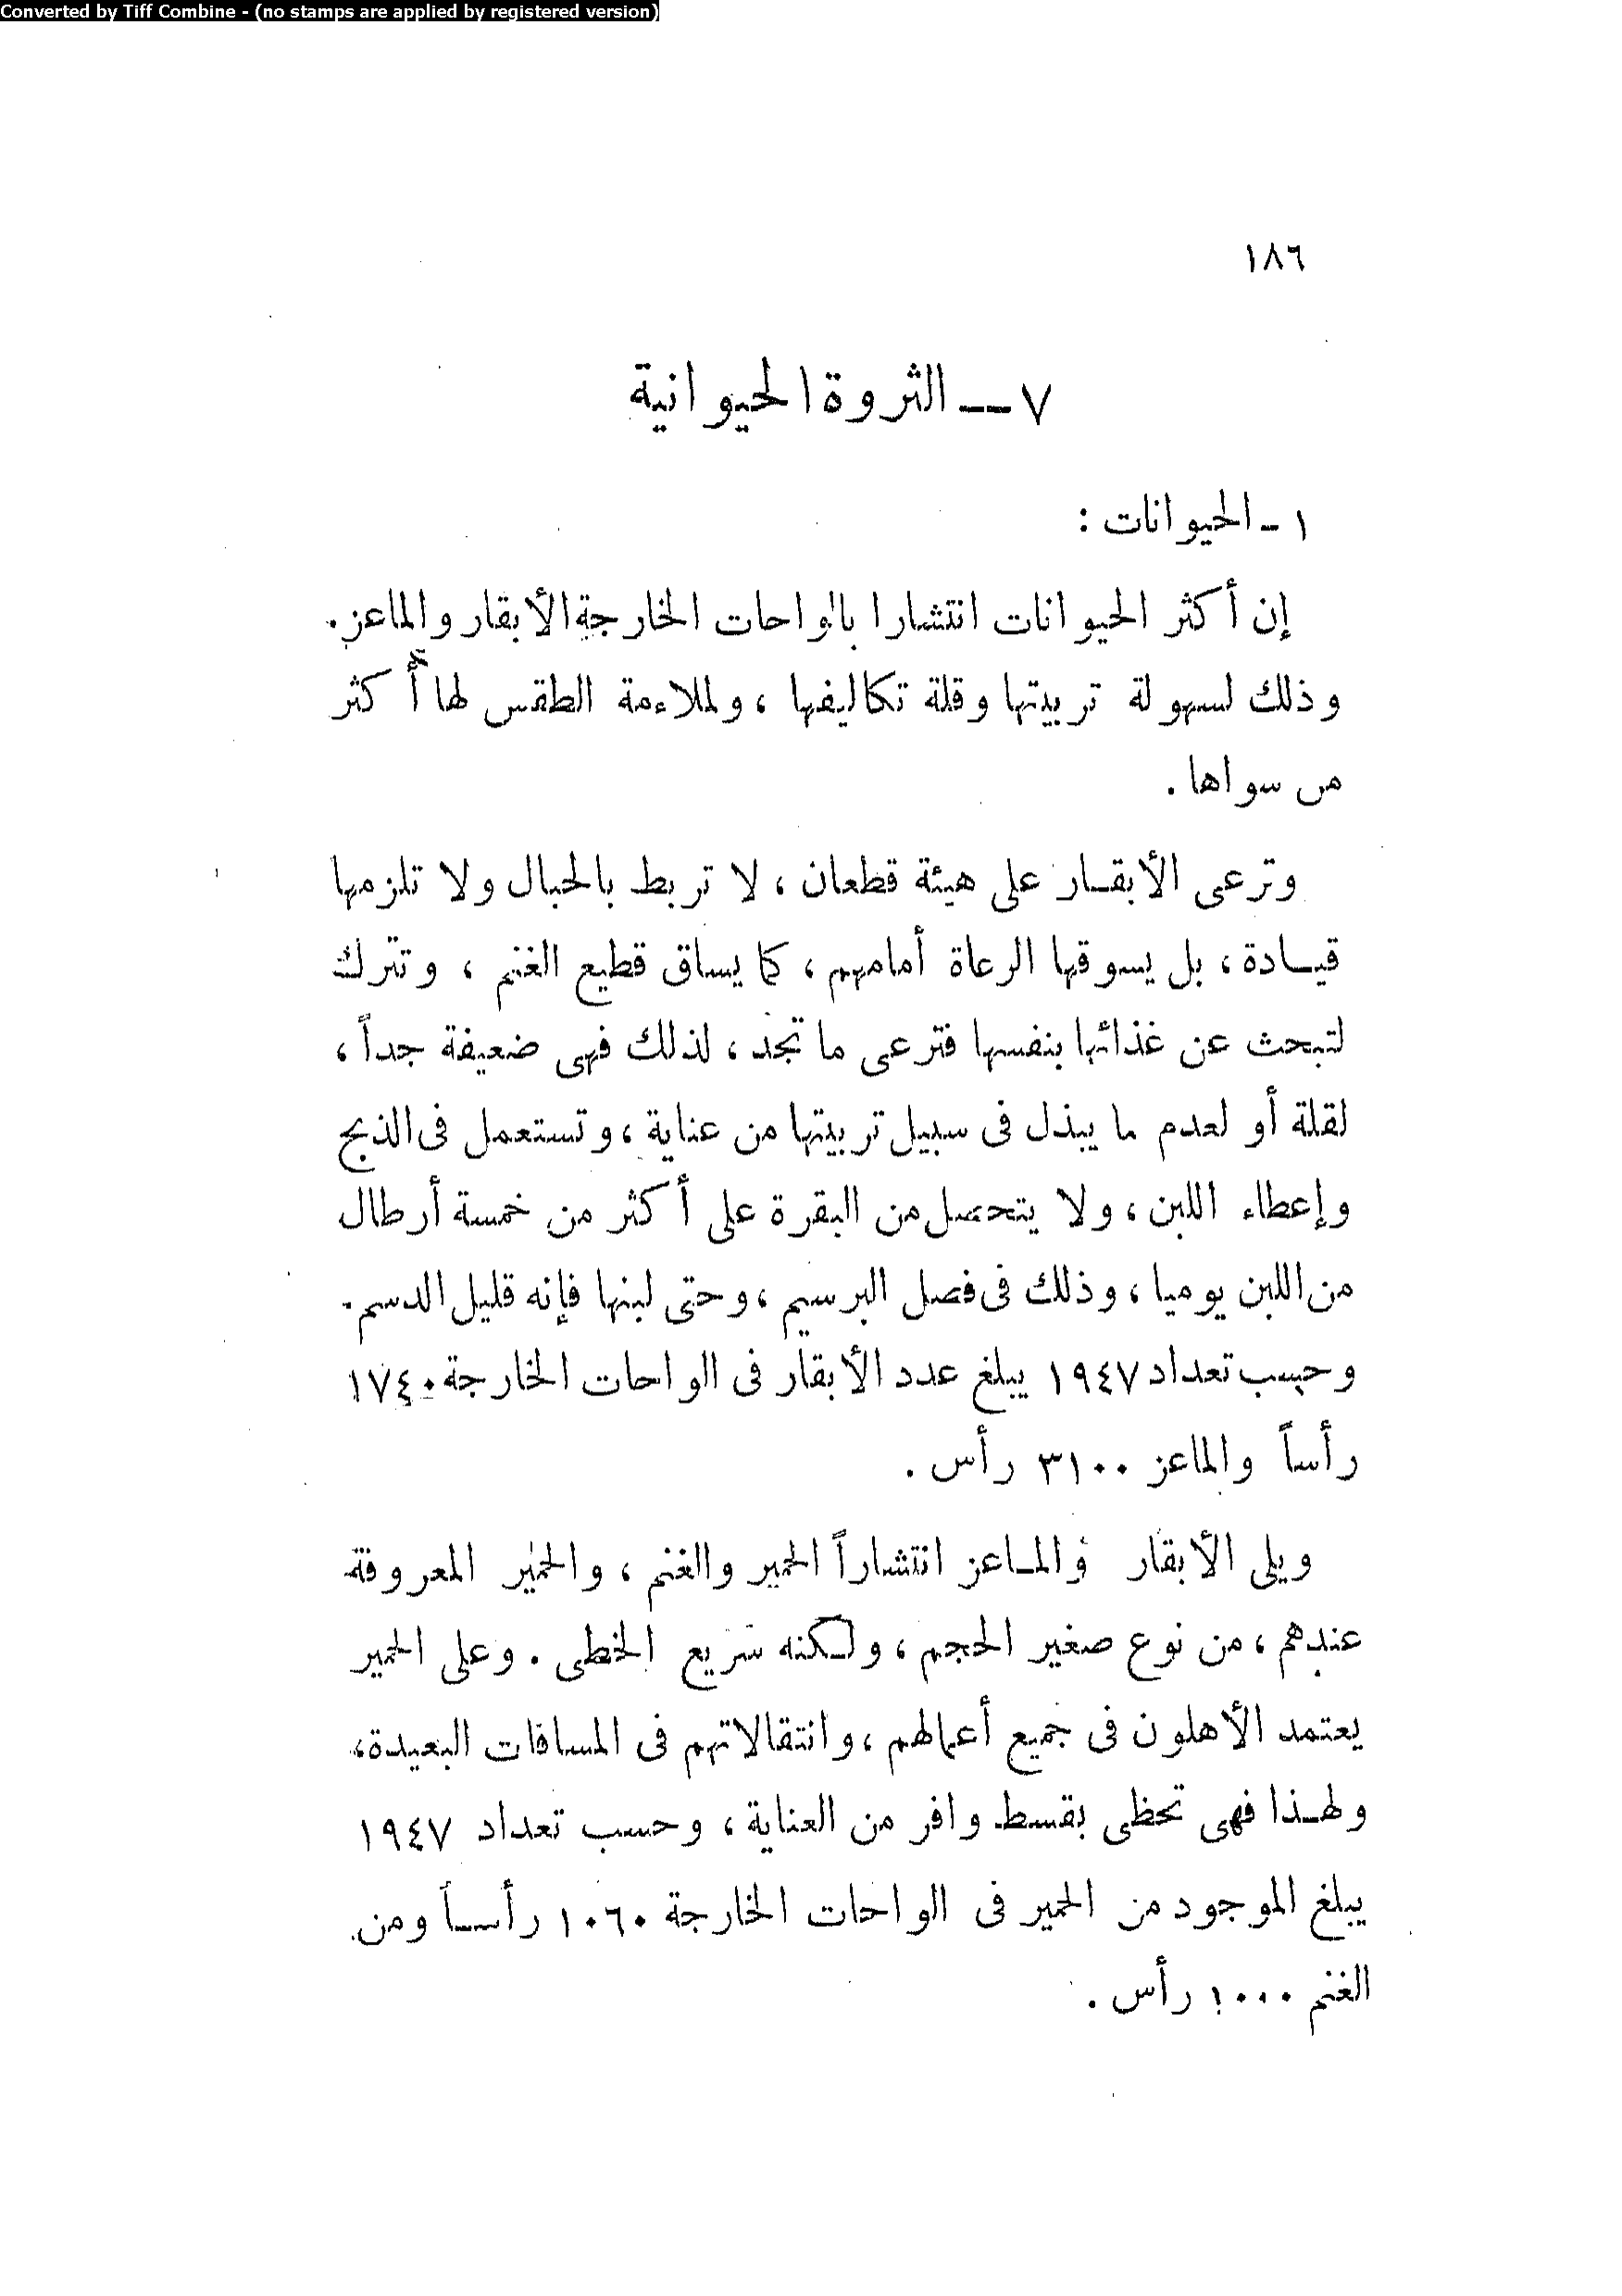 Converted by Tiff Combine - (no stamps are applied by registered version)
١٨٦
٧ — الثروة الحيوانية
١ - الحيوانات :
إن أكثر الحيوانات انتشارا بالواحات الخارجة الأبقار والماعز.
وذلك لسهولة تربيتها وقلة تكاليفها ، ولملاءمة الطقس لها أكثر
من سواها .
وترعى الأبقـار على هيئة قطعان ، لا تربط بالحبال ولا تلزمها
قيـادة ، بل يسوقها الرعاة أمامهم ، كما يساق قطيع الغنم ، وتترك
لتبحث عن غذائها بنفسها فترعى ما تجد ، لذلك فهى ضعيفة جداً ،
لقلة أو لعدم ما يبذل فى سبيل تربيتها من عناية ، وتستعمل فى الذبح
وإعطاء اللبن ، ولا يتحصل من البقرة على أكثر من خمسة أرطال
من اللبن يوميا ، وذلك فى فصل البرسيم ، وحتى لبنها فإنه قليل الدسم .
وحسب تعداد ١٩٤٧ يبلغ عدد الأبقار فى الواحات الخارجة ١٧٤٠
رأساً والماعز ٣١٠٠ رأس .
ويلى الأبقار والمـاعز انتشاراً الحمير والغنم ، والحمير المعروفة
عندهم ، من نوع صغير الحجم ، ولـكنه سريع الخطى . وعلى الحمير
يعتمد الأهلون فى جميع أعمالهم ، وانتقالاتهم فى المسافات البعيدة ،
ولهـذا فهى تحظى بقسط وافر من العناية ، وحسب تعداد ١٩٤٧
يبلغ الموجود من الحمير فى الواحات الخارجة ١٠٦٠ رأسـاً ومن
الغنم ١٠٠٠ رأس .